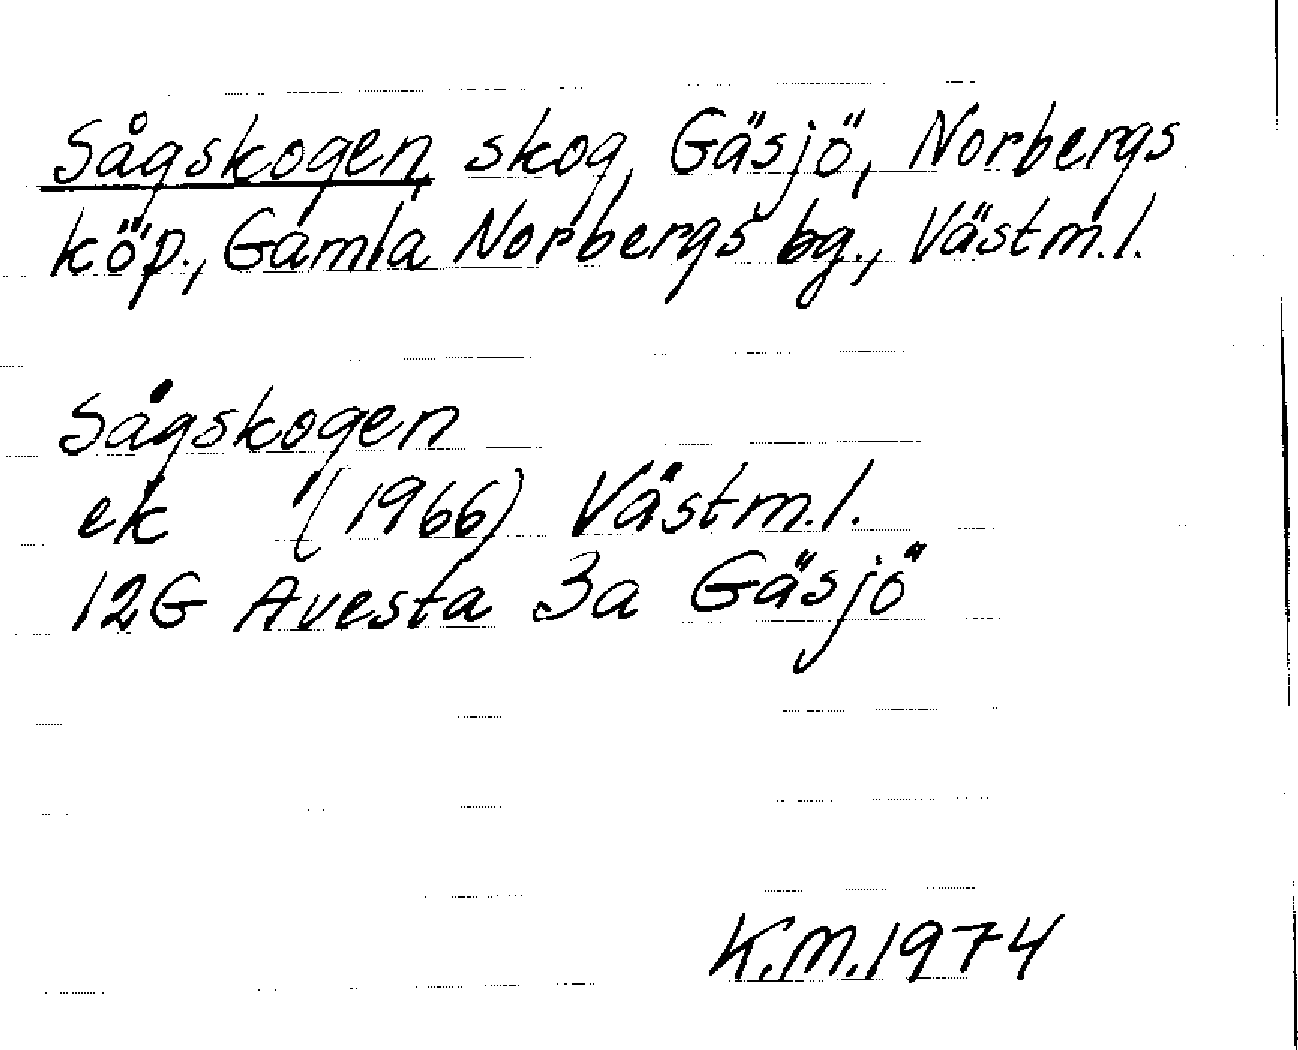 Sågskogen, skog, Gäsjö, Norbergs
köp., Gamla Norbergs bg., Västm.l.
Sågskogen
ek (1966) Västm.l.
12G Avesta 3a Gäsjö
K.M.1974